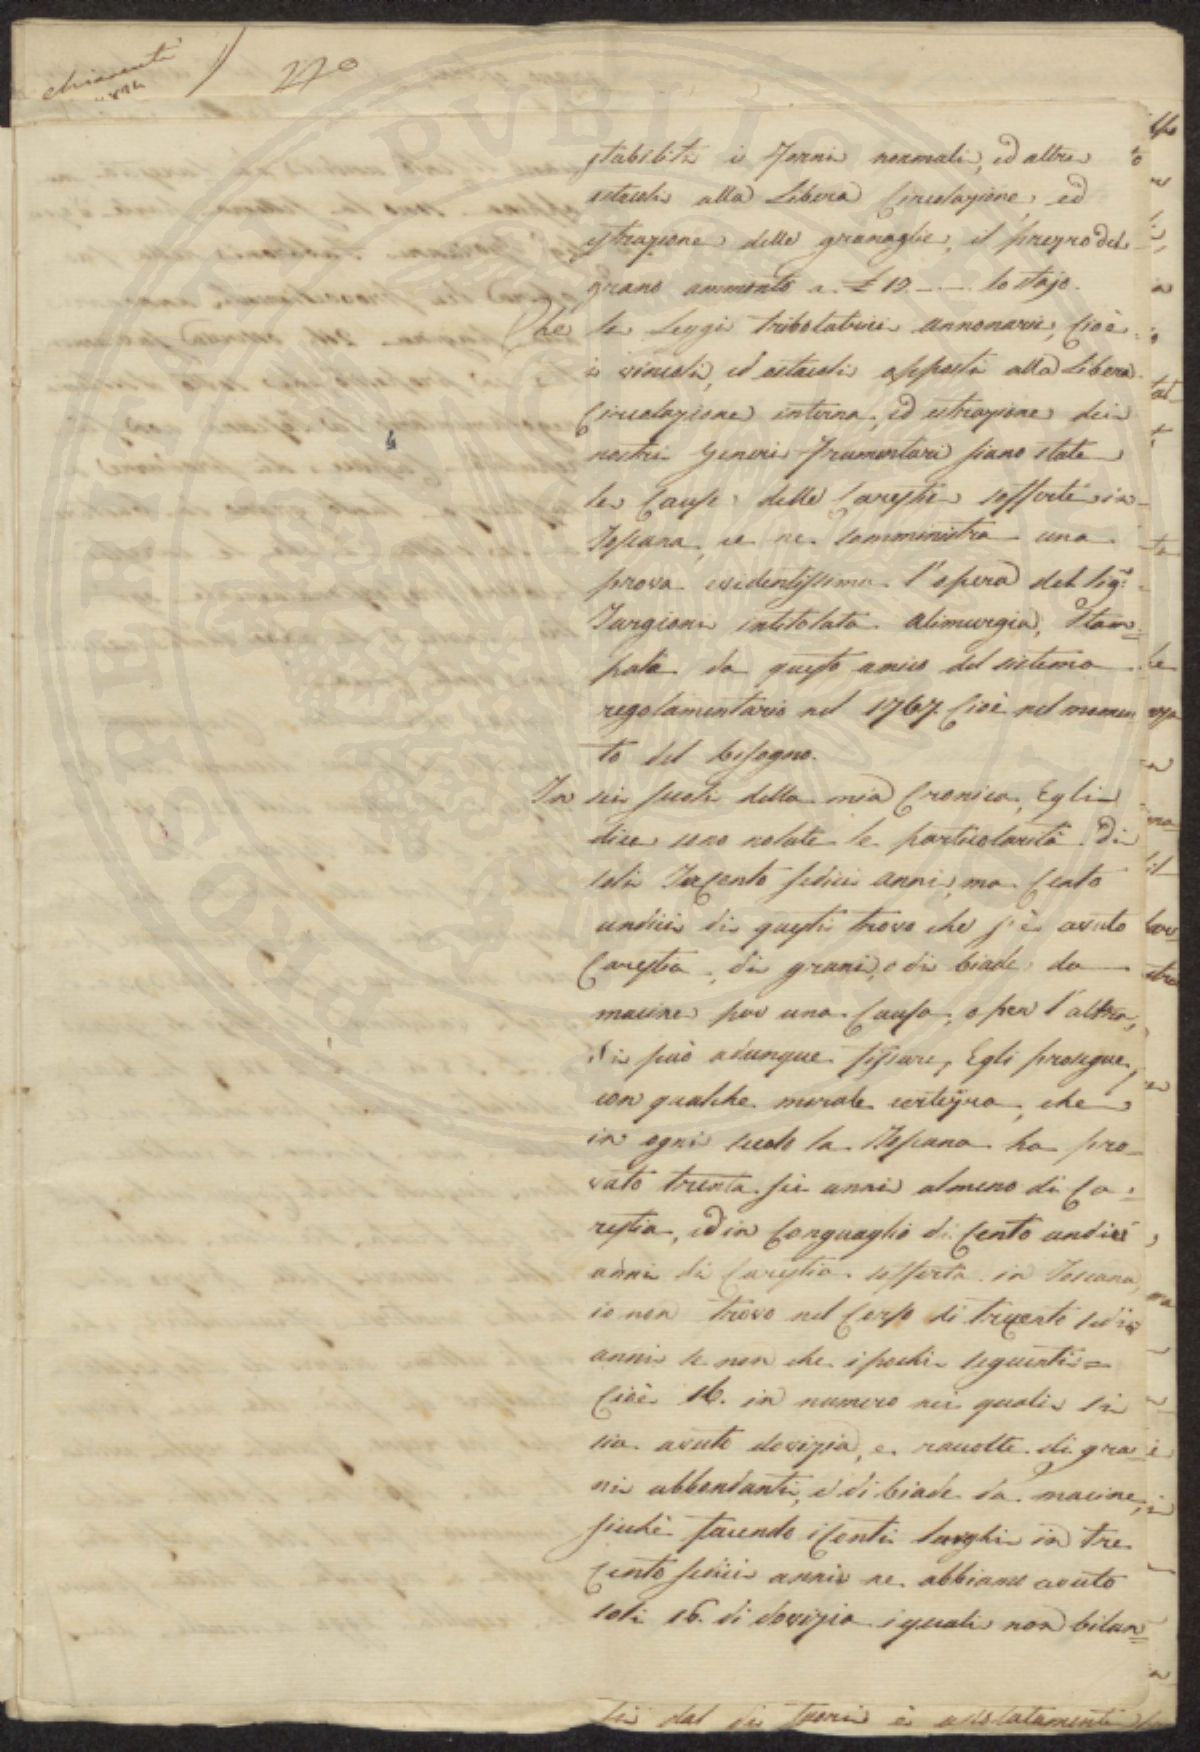 270
stabiliti i Forni normali, ed altri
ostacoli alla Libera Circolazione, ed
estrazione delle granaglie, il prezzo del
grano ammontò a £ 19 — lo stajo.
Che le Leggi tribolatrici annonarie, Cioè
i vincoli, ed ostacoli apposti alla Libera
Circolazione interna, ed estrazione dei
nostri Generi frumentari siano state
le Cause delle Carestie sofferte in
Toscana, ce ne somministra una
prova evidentissima l'opera del Sigr.
Targioni intitolata Alimurgia, Stam=
pata da questo amico del sistema
regolamentario nel 1767. Cioè nel momen
to del bisogno.
In sei secoli della mia Cronica, Egli
dice sono notate le particolarità di
soli Trecento sedici anni, ma Cento
undici di questi trovo che s'è avuto
Carestia, di grani, o di biade da
macine per una Causa, o per l'altra,
Si può adunque fissare, Egli prosegue,
con qualche morale certezza, che
in ogni secolo la Toscana ha pro=
vato trenta sei anni almeno di Ca=
restia, ed in Conguaglio di Cento undici
anni di Carestia sofferta in Toscana,
io non trovo nel Corso di trecento sedici
anni se non che i pochi seguenti =
Cioè 16. in numero nei quali si
sia avuto dovizia, e raccolte di gra=
ni abbondanti, e di biade da macine,
sicchè facendo i Conti larghi in tre
Cento sedici anni ne abbiamo avuto
soli 16. di dovizia i quali non bilan=